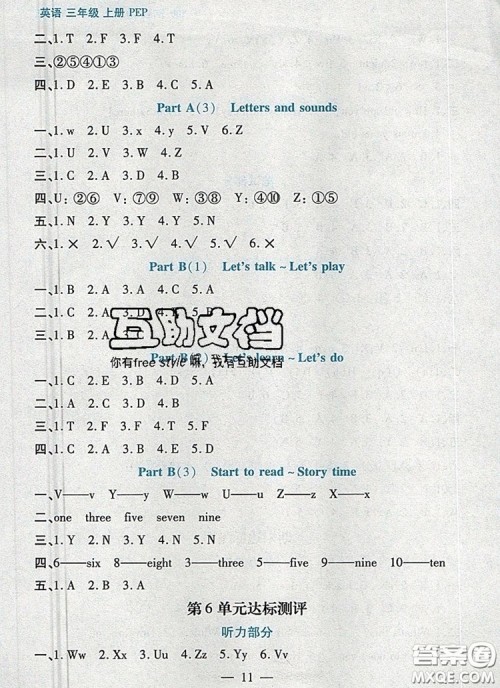 英语 三年级 上册 PEP
二、1.T 2.F 3.F 4.T
三、②⑤④①③
四、1.D 2.E 3.B 4.C 5.A
Part A(3) Letters and sounds
一、1.w 2.U 3.x 4.y 5.V 6.Z
二、1.U 2.V 3.W 4.Z
三、1.N 2.Y 3.Y 4.N 5.Y
四、U：②⑥ V：⑦⑨ W：③⑧ Y：④⑩ Z：①⑤
五、1.N 2.Y 3.Y 4.N 5.N
六、1.× 2.√ 3.√ 4.√ 5.√ 6.×
Part B(1) Let's talk ~ Let's play
一、1.B 2.A 3.A 4.A 5.B
二、1.C 2.A
三、1.B 2.C
互助文档
你有free style 嘛，我有互助文档
Part B(2) Let's learn ~ Let's do
一、1.C 2.C 3.B 4.A 5.C
二、1.C 2.B 3.D 4.E 5.A
三、1.T 2.F 3.F 4.T 5.F
四、1.C 2.A 3.E 4.D 5.B
Part B(3) Start to read ~ Story time
一、V——v Y——y W——w U——u Z——z X——x
二、one three five seven nine
三、1.Y 2.N 3.Y 4.Y 5.N
四、6——six 8——eight 3——three 5——five 9——nine 10——ten
五、1.A 2.B 3.A
第 6 单元达标测评
听力部分
一、1.Ww 2.Uu 3.Xx 4.Zz 5.Yy 6.Vv
— 11 —
答案圈
MXQE.COM